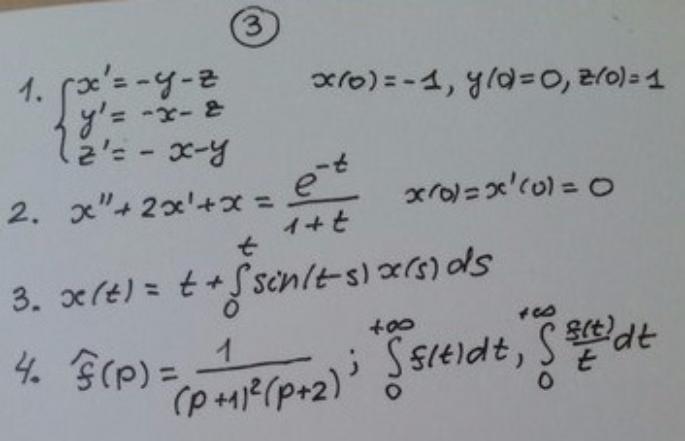 ③
1. { x' = -y - z    x(0) = -1, y(0) = 0, z(0) = 1
y' = -x - z
z' = - x - y
2. x'' + 2x' + x = e^{-t} / (1 + t)    x(0) = x'(0) = 0
3. x(t) = t + ∫_0^t sin(t-s) x(s) ds
4. f̂(p) = 1 / ((p+1)^2 (p+2)) ; ∫_0^{+∞} f(t) dt, ∫_0^{+∞} f(t)/t dt